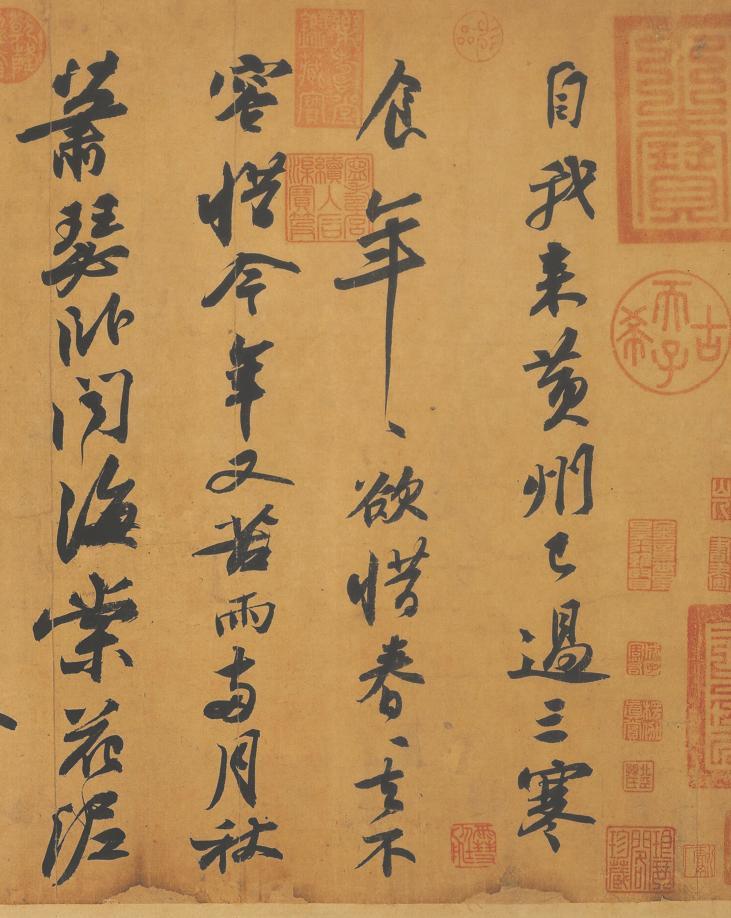 自我来黃州已過三寒
食年〻欲惜春〻去不
容惜今年又苦雨兩月秋
蕭瑟卧聞海棠花泥
古希天子